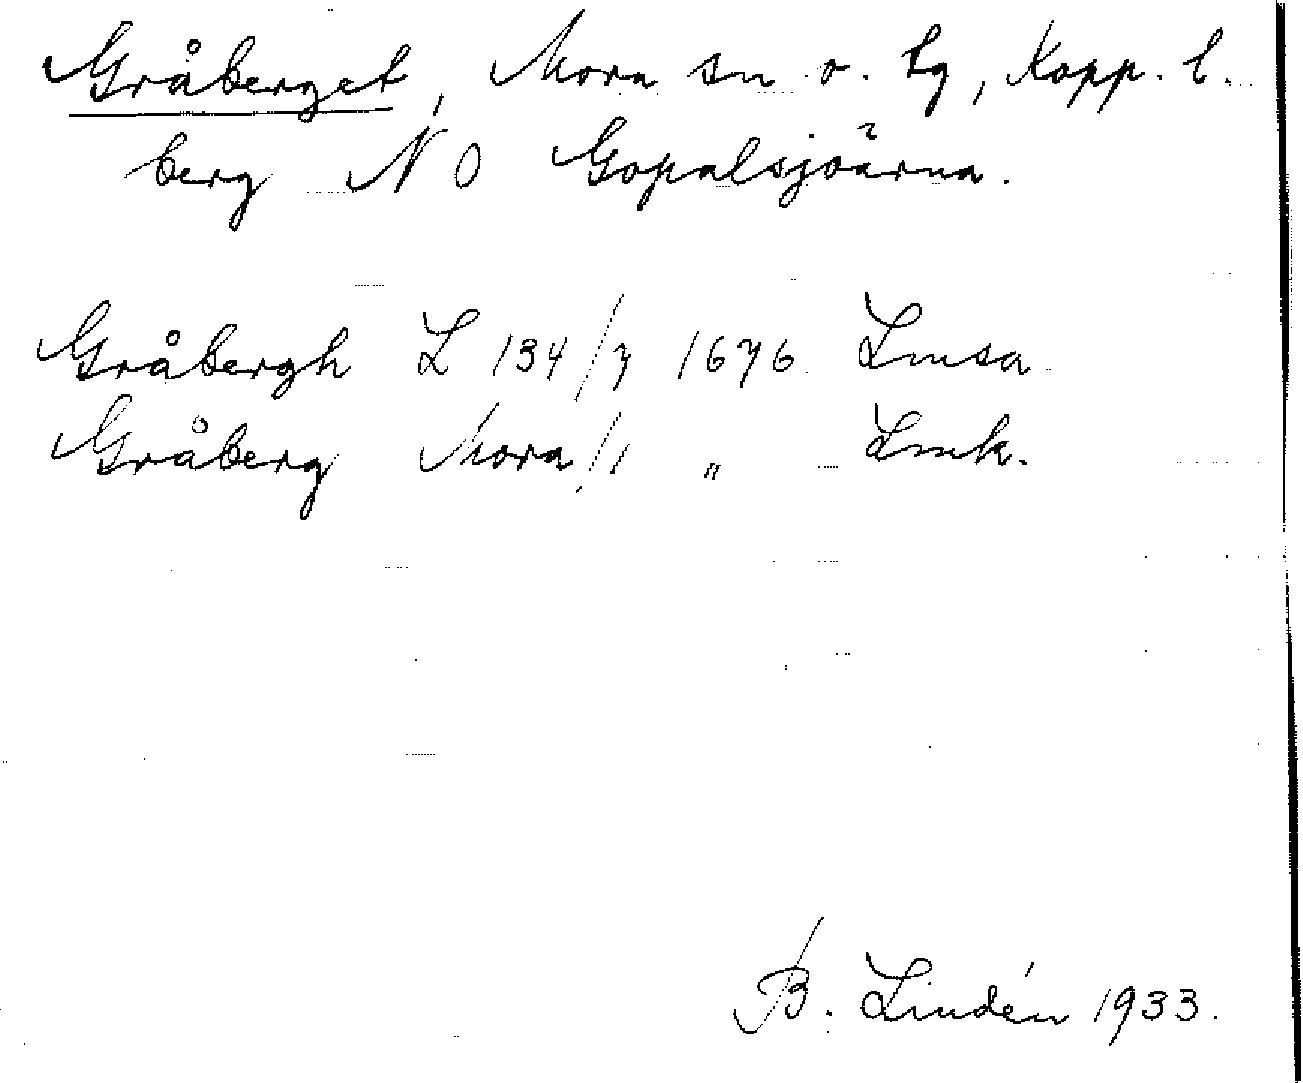 Gråberget, Mora sn o. tg, Kopp. l.
berg NO Gopalsjöarna.
Gråbergh L 134/7 1676 Lmsa
Gråberg Mora 1/1 " Lmk.
B. Lindén 1933.